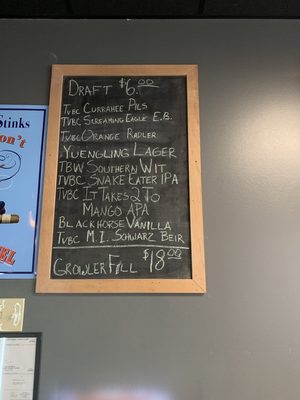 Draft $6.00
TVBC Currahee Pils
TVBC Screaming Eagle E.B.
TVBC Orange Radler
Yuengling Lager
TBW Southern Wit
TVBC Snake Eater IPA
TVBC It Takes 2 To
Mango APA
Blackhorse Vanilla
TVBC M.I. Schwarz Beir
Growler Fill $18.00
Stinks
on't